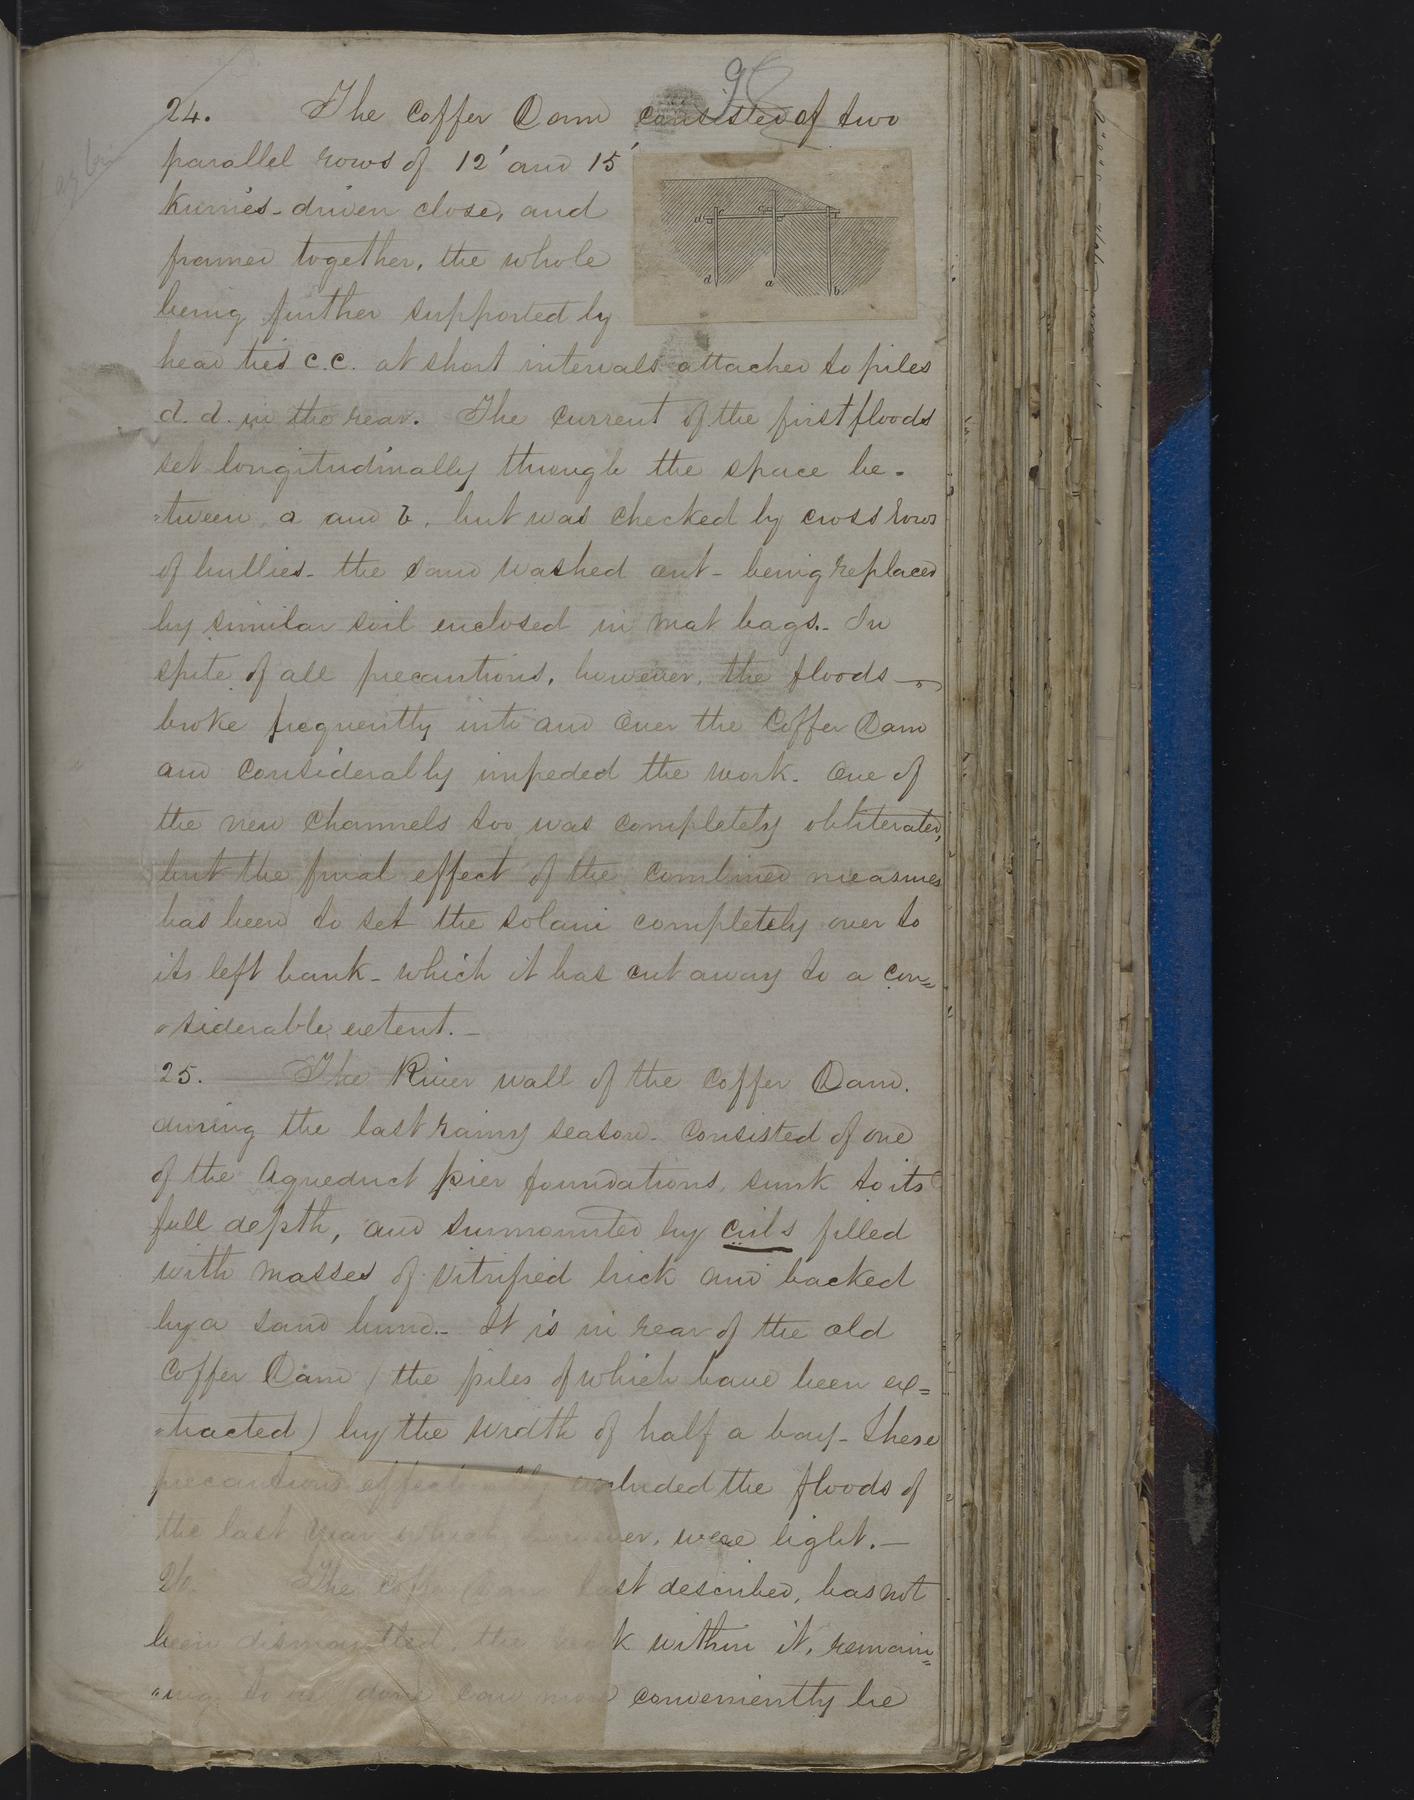 98
24. The Coffer Dam consisted of two
parallel rows of 12' and 15'
kurries - driven close, and
framed together, the whole
being further supported by
head ties c.c. at short intervals attached to piles
d. d. in the rear. The current of the first floods
set longitudinally through the space be-
"tween a and b, but was checked by cross rows
of bullies - the sand washed out - being replaced
by similar soil enclosed in mat bags. - In
spite of all precautions, however, the floods
broke frequently into and over the Coffer Dam
and considerably impeded the work. One of
the new channels too was completely obliterated,
but the final effect of the combined measures
has been to set the Solani completely over to
its left bank - which it has cut away to a con=
"siderable extent. -
25. The River wall of the Coffer Dam.
during the last rainy season - consisted of one
of the Aqueduct pier foundations, sunk to its
full depth, and surmounted by cribs filled
with masses of vitrified brick and backed
by a sand bund. - It is in rear of the old
Coffer Dam (the piles of which have been ex=
"tracted) by the width of half a bay - These
precautions effectually excluded the floods of
the last year which however, were light. -
26. The Coffer Dam last described, has not
been dismantled, the work within it, remain=
"ing to be done can more conveniently be
d
c
d
a
b